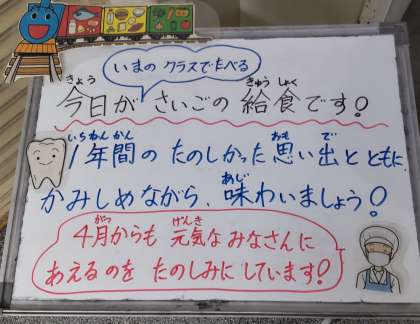 いまの クラスでたべる
きょう きゅう しょく
今日が さいごの 給食です!
いちねんかん おも で
1年間の たのしかった 思い出と ともに
あじ
かみしめながら、味わいましょう!
がつ げんき
4月からも 元気な みなさんに
あえるのを たのしみに しています!